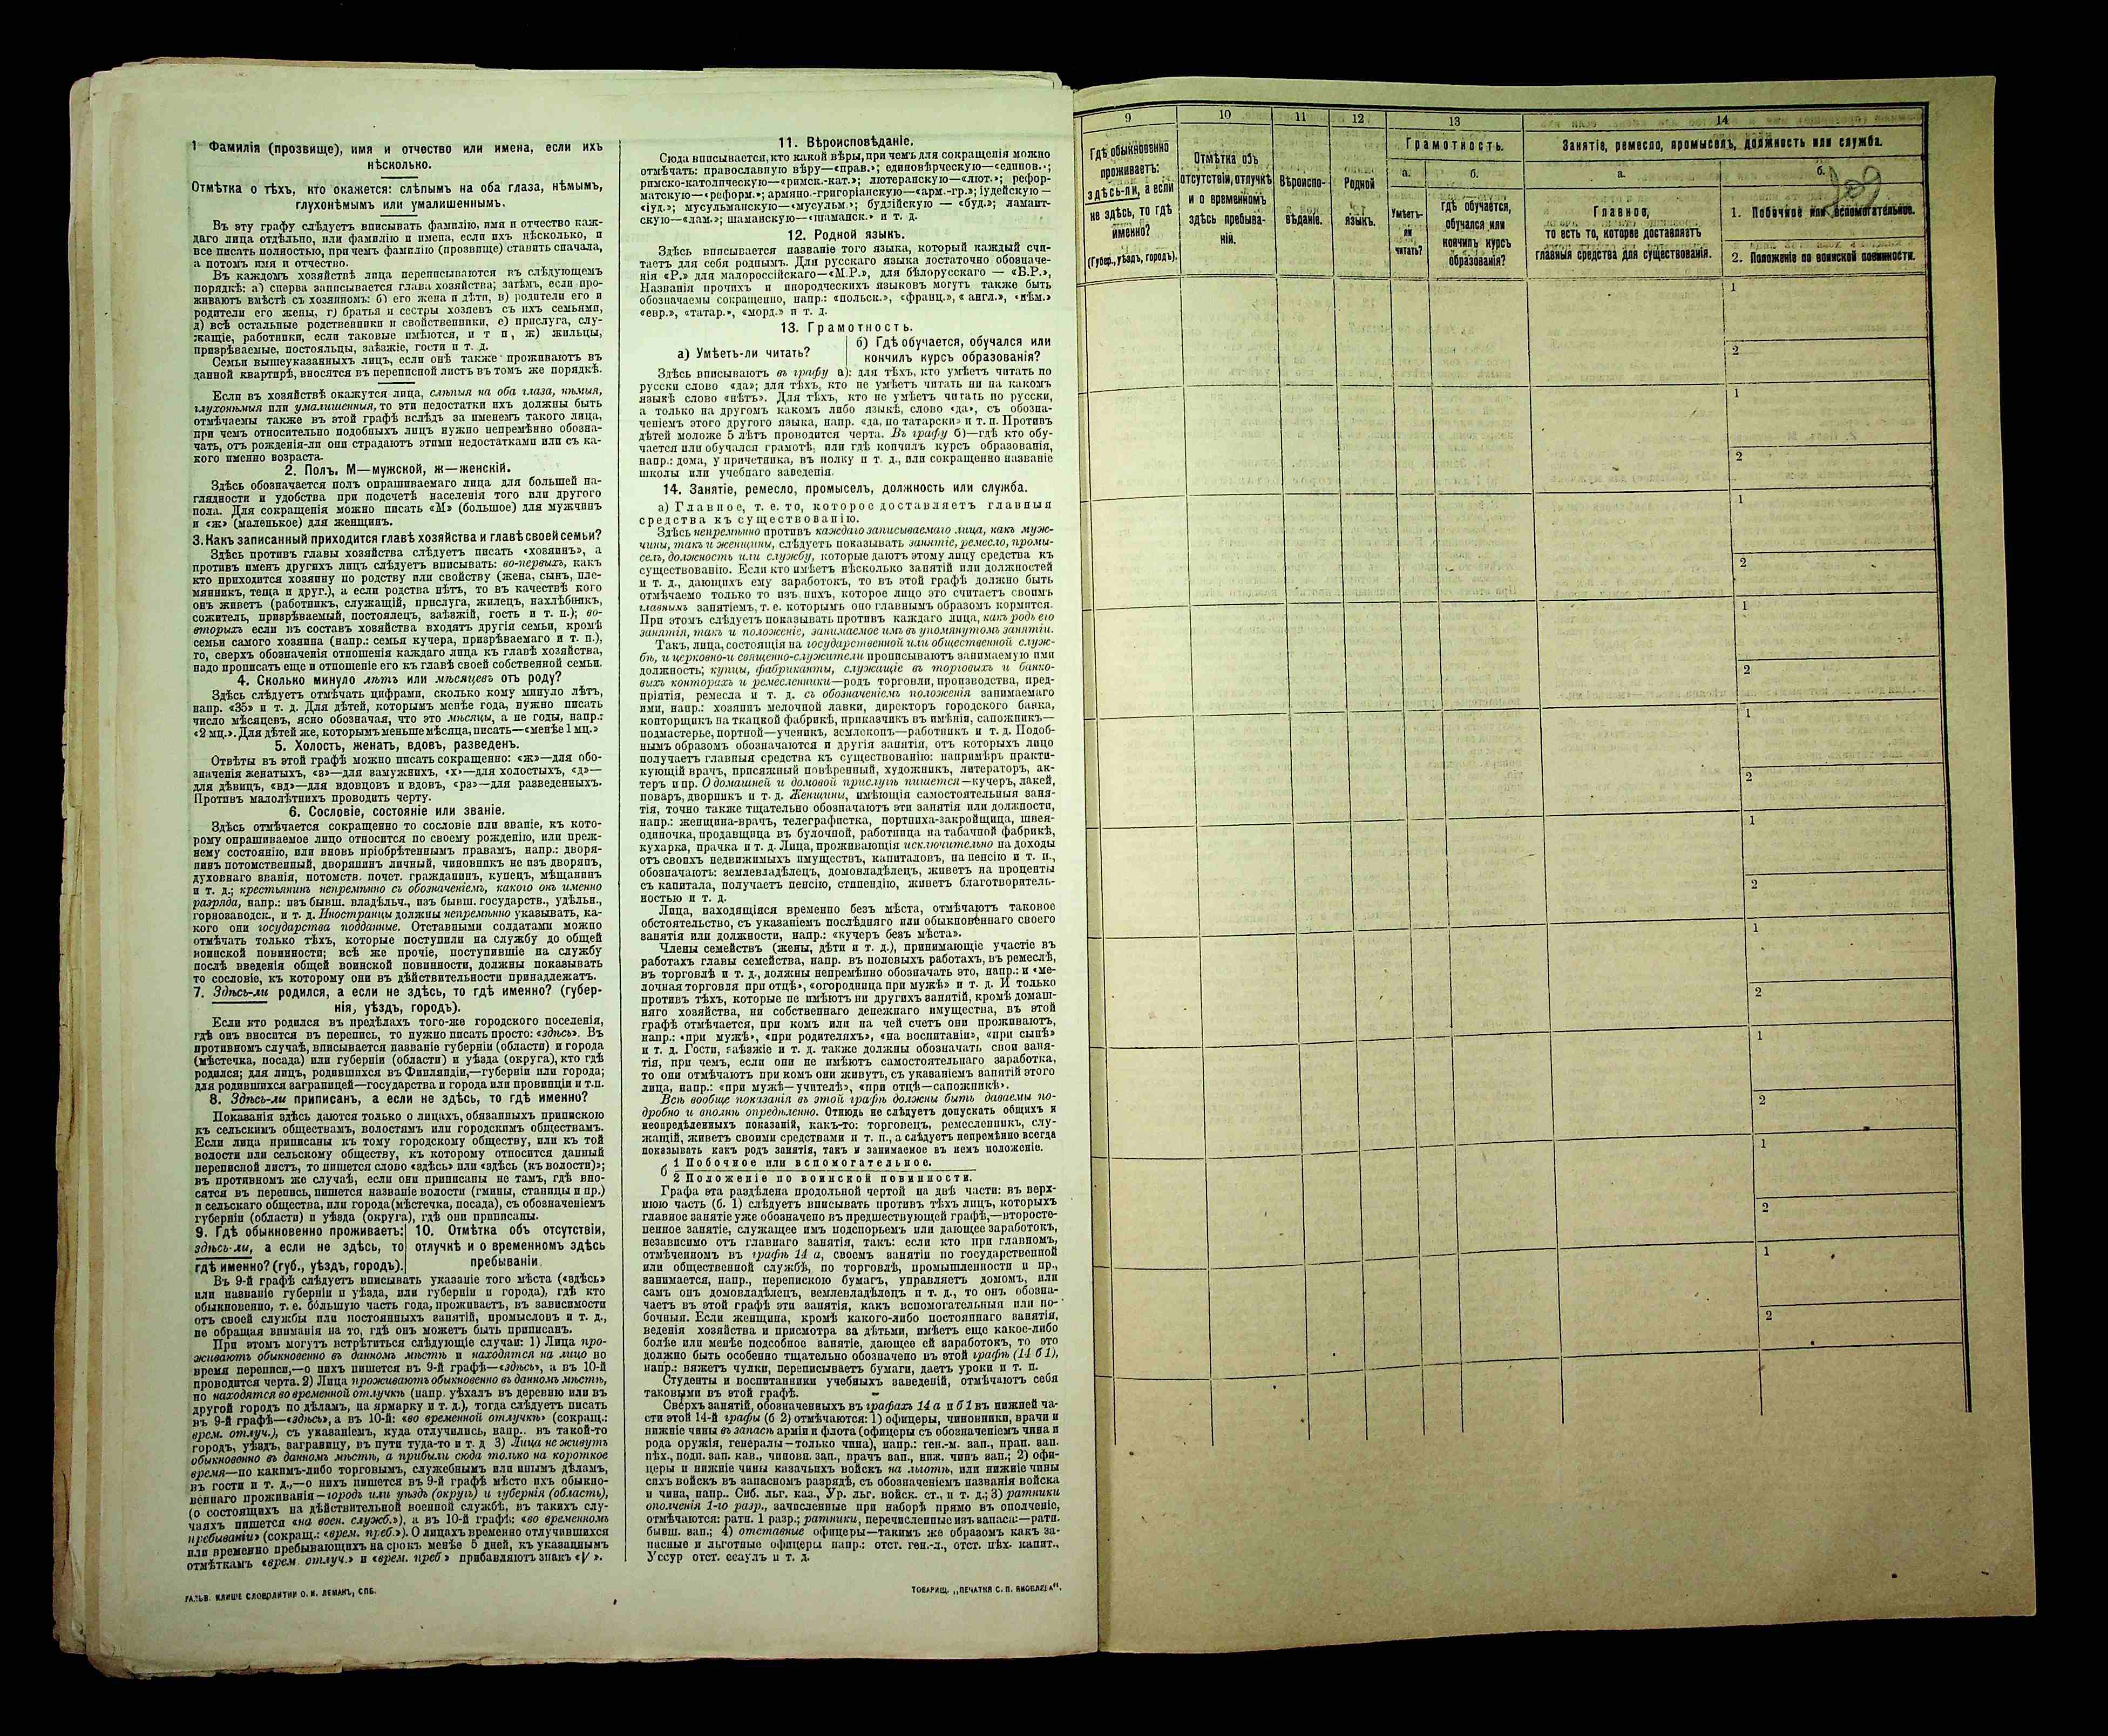 1 Фамилія (прозвище), имя и отчество или имена, если ихъ
нѣсколько.
Отмѣтка о тѣхъ, кто окажется: слѣпымъ на оба глаза, нѣмымъ,
глухонѣмымъ или умалишеннымъ.
Въ эту графу слѣдуетъ вписывать фамилію, имя и отчество каж-
даго лица отдѣльно, или фамилію и имена, если ихъ нѣсколько, и
все писать полностью, при чемъ фамилію (прозвище) ставить сначала,
а потомъ имя и отчество.
Въ каждомъ хозяйствѣ лица переписываются въ слѣдующемъ
порядкѣ: а) сперва записывается глава хозяйства; затѣмъ, если про-
живаютъ вмѣстѣ съ хозяиномъ: б) его жена и дѣти, в) родители его и
родители его жены, г) братья и сестры хозяевъ съ ихъ семьями,
д) всѣ остальные родственники и свойственники, е) прислуга, слу-
жащіе, работники, если таковые имѣются, и т п, ж) жильцы,
призрѣваемые, постояльцы, заѣзжіе, гости и т. д.
Семьи вышеуказанныхъ лицъ, если онѣ также проживаютъ въ
данной квартирѣ, вносятся въ переписной листъ въ томъ же порядкѣ.
Если въ хозяйствѣ окажутся лица, слѣпыя на оба глаза, нѣмыя,
глухонѣмыя или умалишенныя, то эти недостатки ихъ должны быть
отмѣчаемы также въ этой графѣ вслѣдъ за именемъ такого лица,
при чемъ относительно подобныхъ лицъ нужно непремѣнно обозна-
чать, отъ рожденія-ли они страдаютъ этими недостатками или съ ка-
кого именно возраста.
2. Полъ. М—мужской, ж—женскій.
Здѣсь обозначается полъ опрашиваемаго лица для большей на-
глядности и удобства при подсчетѣ населенія того или другого
пола. Для сокращенія можно писать «М» (большое) для мужчинъ
и «ж» (маленькое) для женщинъ.
3. Какъ записанный приходится главѣ хозяйства и главѣ своей семьи?
Здѣсь противъ главы хозяйства слѣдуетъ писать «хозяинъ», а
противъ именъ другихъ лицъ слѣдуетъ вписывать: во-первыхъ, какъ
кто приходится хозяину по родству или свойству (жена, сынъ, пле-
мянникъ, теща и друг.), а если родства нѣтъ, то въ качествѣ кого
онъ живетъ (работникъ, служащій, прислуга, жилецъ, нахлѣбникъ,
сожитель, призрѣваемый, постоялецъ, заѣзжій, гость и т. п.); во-
вторыхъ если въ составъ хозяйства входятъ другія семьи, кромѣ
семьи самого хозяина (напр.: семья кучера, призрѣваемаго и т. п.),
то, сверхъ обозначенія отношенія каждаго лица къ главѣ хозяйства,
надо прописать еще и отношеніе его къ главѣ своей собственной семьи.
4. Сколько минуло лѣтъ или мѣсяцевъ отъ роду?
Здѣсь слѣдуетъ отмѣчать цифрами, сколько кому минуло лѣтъ,
напр. «35» и т. д. Для дѣтей, которымъ менѣе года, нужно писать
число мѣсяцевъ, ясно обозначая, что это мѣсяцы, а не годы, напр.:
«2 мц.». Для дѣтей же, которымъ меньше мѣсяца, писать—«менѣе 1 мц.»
5. Холостъ, женатъ, вдовъ, разведенъ.
Отвѣты въ этой графѣ можно писать сокращенно: «ж»—для обо-
значенія женатыхъ, «з»—для замужнихъ, «х»—для холостыхъ, «д»—
для дѣвицъ, «вд»—для вдовцовъ и вдовъ, «рз»—для разведенныхъ.
Противъ малолѣтнихъ проводить черту.
6. Сословіе, состояніе или званіе.
Здѣсь отмѣчается сокращенно то сословіе или званіе, къ кото-
рому опрашиваемое лицо относится по своему рожденію, или преж-
нему состоянію, или вновь пріобрѣтеннымъ правамъ, напр.: дворя-
нинъ потомственный, дворянинъ личный, чиновникъ не изъ дворянъ,
духовнаго званія, потомств. почет. гражданинъ, купецъ, мѣщанинъ
и т. д.; крестьянинъ непремѣнно съ обозначеніемъ, какого онъ именно
разряда, напр.: изъ бывш. владѣльч., изъ бывш. государств., удѣльн.,
горнозаводск., и т. д. Иностранцы должны непремѣнно указывать, ка-
кого они государства подданные. Отставными солдатами можно
отмѣчать только тѣхъ, которые поступили на службу до общей
воинской повинности; всѣ же прочіе, поступившіе на службу
послѣ введенія общей воинской повинности, должны показывать
то сословіе, къ которому они въ дѣйствительности принадлежатъ.
7. Здѣсь-ли родился, а если не здѣсь, то гдѣ именно? (губер-
нія, уѣздъ, городъ).
Если кто родился въ предѣлахъ того-же городского поселенія,
гдѣ онъ вносится въ перепись, то нужно писать просто: «здѣсь». Въ
противномъ случаѣ, вписывается названіе губерніи (области) и города
(мѣстечка, посада) или губерніи (области) и уѣзда (округа), кто гдѣ
родился; для лицъ, родившихся въ Финляндіи,—губерніи или города;
для родившихся заграницей—государства и города или провинціи и т.п.
8. Здѣсь-ли приписанъ, а если не здѣсь, то гдѣ именно?
Показанія здѣсь даются только о лицахъ, обязанныхъ припискою
къ сельскимъ обществамъ, волостямъ или городскимъ обществамъ.
Если лица приписаны къ тому городскому обществу, или къ той
волости или сельскому обществу, къ которому относится данный
переписной листъ, то пишется слово «здѣсь» или «здѣсь (къ волости)»;
въ противномъ же случаѣ, если они приписаны не тамъ, гдѣ вно-
сятся въ перепись, пишется названіе волости (гмины, станицы и пр.)
и сельскаго общества, или города (мѣстечка, посада), съ обозначеніемъ
губерніи (области) и уѣзда (округа), гдѣ они приписаны.
9. Гдѣ обыкновенно проживаетъ:
здѣсь-ли, а если не здѣсь, то
гдѣ именно? (губ., уѣздъ, городъ).
10. Отмѣтка объ отсутствіи,
отлучкѣ и о временномъ здѣсь
пребываніи
Въ 9-й графѣ слѣдуетъ вписывать указаніе того мѣста («здѣсь»
или названіе губерніи и уѣзда, или губерніи и города), гдѣ кто
обыкновенно, т. е. бо́льшую часть года, проживаетъ, въ зависимости
отъ своей службы или постоянныхъ занятій, промысловъ и т. д.,
не обращая вниманія на то, гдѣ онъ можетъ быть приписанъ.
При этомъ могутъ встрѣтиться слѣдующіе случаи: 1) Лица про-
живаютъ обыкновенно въ данномъ мѣстѣ и находятся на лицо во
время переписи,—о нихъ пишется въ 9-й графѣ—«здѣсь», а въ 10-й
проводится черта. 2) Лица проживаютъ обыкновенно въ данномъ мѣстѣ,
но находятся во временной отлучкѣ (напр. уѣхалъ въ деревню или въ
другой городъ по дѣламъ, на ярмарку и т. д.), тогда слѣдуетъ писать
въ 9-й графѣ—«здѣсь», а въ 10-й: «во временной отлучкѣ» (сокращ.:
врем. отлуч.), съ указаніемъ, куда отлучились, напр.. въ такой-то
городъ, уѣздъ, заграницу, въ пути туда-то и т. д 3) Лица не живутъ
обыкновенно въ данномъ мѣстѣ, а прибыли сюда только на короткое
время—по какимъ-либо торговымъ, служебнымъ или инымъ дѣламъ,
въ гости и т. д.,—о нихъ пишется въ 9-й графѣ мѣсто ихъ обыкно-
веннаго проживанія—городъ или уѣздъ (округъ) и губернія (область),
(о состоящихъ на дѣйствительной военной службѣ, въ такихъ слу-
чаяхъ пишется «на воен. служб.»), а въ 10-й графѣ: «во временномъ
пребываніи» (сокращ.: «врем. преб.»). О лицахъ временно отлучившихся
или временно пребывающихъ на срокъ менѣе 5 дней, къ указаннымъ
отмѣткамъ «врем. отлуч.» и «врем. преб» прибавляютъ знакъ «V».
ГАЛЬВ. КЛИШЕ СЛОВОЛИТНИ О. И. ЛЕМАНЪ, СПБ.
11. Вѣроисповѣданіе.
Сюда вписывается, кто какой вѣры, при чемъ для сокращенія можно
отмѣчать: православную вѣру—«прав.»; единовѣрческую—«единов.»;
римско-католическую—«римск.-кат.»; лютеранскую—«лют.»; рефор-
матскую—«реформ.»; армяно-григоріанскую—«арм.-гр.»; іудейскую—
«іуд.»; мусульманскую—«мусульм.»; буддійскую — «буд.»; ламаит-
скую—«лам.»; шаманскую—«шаманск.» и т. д.
12. Родной языкъ.
Здѣсь вписывается названіе того языка, который каждый счи-
таетъ для себя роднымъ. Для русскаго языка достаточно обозначе-
нія «Р.» для малороссійскаго—«М.Р.», для бѣлорусскаго — «Б.Р.»,
Названія прочихъ и инородческихъ языковъ могутъ также быть
обозначаемы сокращенно, напр.: «польск.», «франц.», «англ.», «нѣм.»
«евр.», «татар.», «морд.» и т. д.
13. Грамотность.
а) Умѣетъ-ли читать?
б) Гдѣ обучается, обучался или
кончилъ курсъ образованія?
Здѣсь вписываютъ въ графу а): для тѣхъ, кто умѣетъ читать по
русски слово «да»; для тѣхъ, кто не умѣетъ читать ни на какомъ
языкѣ слово «нѣтъ». Для тѣхъ, кто не умѣетъ читать по русски,
а только на другомъ какомъ либо языкѣ, слово «да», съ обозна-
ченіемъ этого другого языка, напр. «да, по татарски» и т. п. Противъ
дѣтей моложе 5 лѣтъ проводится черта. Въ графу б)—гдѣ кто обу-
чается или обучался грамотѣ, или гдѣ кончилъ курсъ образованія,
напр.: дома, у причетника, въ полку и т. д., или сокращенно названіе
школы или учебнаго заведенія.
14. Занятіе, ремесло, промыселъ, должность или служба.
а) Главное, т. е. то, которое доставляетъ главныя
средства къ существованію.
Здѣсь непремѣнно противъ каждаго записываемаго лица, какъ муж-
чины, такъ и женщины, слѣдуетъ показывать занятіе, ремесло, промы-
селъ, должность или службу, которые даютъ этому лицу средства къ
существованію. Если кто имѣетъ нѣсколько занятій или должностей
и т. д., дающихъ ему заработокъ, то въ этой графѣ должно быть
отмѣчаемо только то изъ нихъ, которое лицо это считаетъ своимъ
главнымъ занятіемъ, т. е. которымъ оно главнымъ образомъ кормится.
При этомъ слѣдуетъ показывать противъ каждаго лица, какъ родъ его
занятія, такъ и положеніе, занимаемое имъ въ упомянутомъ занятіи.
Такъ, лица, состоящія на государственной или общественной служ-
бѣ, и церковно-и священно-служители прописываютъ занимаемую ими
должность; купцы, фабриканты, служащіе въ торговыхъ и банко-
выхъ конторахъ и ремесленники—родъ торговли, производства, пред-
пріятія, ремесла и т. д. съ обозначеніемъ положенія занимаемаго
ими, напр.: хозяинъ мелочной лавки, директоръ городского банка,
конторщикъ на ткацкой фабрикѣ, приказчикъ въ имѣніи, сапожникъ—
подмастерье, портной—ученикъ, землекопъ—работникъ и т. д. Подоб-
нымъ образомъ обозначаются и другія занятія, отъ которыхъ лицо
получаетъ главныя средства къ существованію: напримѣръ практи-
кующій врачъ, присяжный повѣренный, художникъ, литераторъ, ак-
теръ и пр. О домашней и домовой прислугѣ пишется—кучеръ, лакей,
поваръ, дворникъ и т. д. Женщины, имѣющія самостоятельныя заня-
тія, точно также тщательно обозначаютъ эти занятія или должности,
напр.: женщина-врачъ, телеграфистка, портниха-закройщица, швея-
одиночка, продавщица въ булочной, работница на табачной фабрикѣ,
кухарка, прачка и т. д. Лица, проживающія исключительно на доходы
отъ своихъ недвижимыхъ имуществъ, капиталовъ, на пенсію и т. п.,
обозначаютъ: землевладѣлецъ, домовладѣлецъ, живетъ на проценты
съ капитала, получаетъ пенсію, стипендію, живетъ благотворитель-
ностью и т. д.
Лица, находящіяся временно безъ мѣста, отмѣчаютъ таковое
обстоятельство, съ указаніемъ послѣдняго или обыкновеннаго своего
занятія или должности, напр.: «кучеръ безъ мѣста».
Члены семействъ (жены, дѣти и т. д.), принимающіе участіе въ
работахъ главы семейства, напр. въ полевыхъ работахъ, въ ремеслѣ,
въ торговлѣ и т. д., должны непремѣнно обозначать это, напр.: и «ме-
лочная торговля при отцѣ», «огородница при мужѣ» и т. д. И только
противъ тѣхъ, которые не имѣютъ ни другихъ занятій, кромѣ домаш-
няго хозяйства, ни собственнаго денежнаго имущества, въ этой
графѣ отмѣчается, при комъ или на чей счетъ они проживаютъ,
напр.: «при мужѣ», «при родителяхъ», «на воспитаніи», «при сынѣ»
и т. д. Гости, заѣзжіе и т. д. также должны обозначать свои заня-
тія, при чемъ, если они не имѣютъ самостоятельнаго заработка,
то они отмѣчаютъ при комъ они живутъ, съ указаніемъ занятій этого
лица, напр.: «при мужѣ—учителѣ», «при отцѣ—сапожникѣ».
Всѣ вообще показанія въ этой графѣ должны быть даваемы по-
дробно и вполнѣ опредѣленно. Отнюдь не слѣдуетъ допускать общихъ и
неопредѣленныхъ показаній, какъ-то: торговецъ, ремесленникъ, слу-
жащій, живетъ своими средствами и т. п., а слѣдуетъ непремѣнно всегда
показывать какъ родъ занятія, такъ и занимаемое въ немъ положеніе.
б 1 Побочное или вспомогательное.
2 Положеніе по воинской повинности.
Графа эта раздѣлена продольной чертой на двѣ части: въ верх-
нюю часть (б. 1) слѣдуетъ вписывать противъ тѣхъ лицъ, которыхъ
главное занятіе уже обозначено въ предшествующей графѣ,—второсте-
пенное занятіе, служащее имъ подспорьемъ или дающее заработокъ,
независимо отъ главнаго занятія, такъ: если кто при главномъ,
отмѣченномъ въ графѣ 14 а, своемъ занятіи по государственной
или общественной службѣ, по торговлѣ, промышленности и пр.,
занимается, напр., перепискою бумагъ, управляетъ домомъ, или
самъ онъ домовладѣлецъ, землевладѣлецъ и т. д., то онъ обозна-
чаетъ въ этой графѣ эти занятія, какъ вспомогательныя или по-
бочныя. Если женщина, кромѣ какого-либо постояннаго занятія,
веденія хозяйства и присмотра за дѣтьми, имѣетъ еще какое-либо
болѣе или менѣе подсобное занятіе, дающее ей заработокъ, то это
должно быть особенно тщательно обозначено въ этой графѣ (14 б 1),
напр.: вяжетъ чулки, переписываетъ бумаги, даетъ уроки и т. п.
Студенты и воспитанники учебныхъ заведеній, отмѣчаютъ себя
таковыми въ этой графѣ.
Сверхъ занятій, обозначенныхъ въ графахъ 14 а и б 1 въ нижней ча-
сти этой 14-й графы (б 2) отмѣчаются: 1) офицеры, чиновники, врачи и
нижніе чины въ запасѣ арміи и флота (офицеры съ обозначеніемъ чина и
рода оружія, генералы—только чина), напр.: ген.-м. зап., прап. зап.
пѣх., подп. зап. кав., чиновн. зап., врачъ зап., ниж. чинъ зап.; 2) офи-
церы и нижніе чины казачьихъ войскъ на льготѣ, или нижніе чины
сихъ войскъ въ запасномъ разрядѣ, съ обозначеніемъ названія войска
и чина, напр.. Сиб. льг. каз., Ур. льг. войск. ст., и т. д.; 3) ратники
ополченія 1-го разр., зачисленные при наборѣ прямо въ ополченіе,
отмѣчаются: ратн. 1 разр.; ратники, перечисленные изъ запаса:—ратн.
бывш. зап.; 4) отставные офицеры—такимъ же образомъ какъ за-
пасные и льготные офицеры напр.: отст. ген.-л., отст. пѣх. капит.,
Уссур отст. есаулъ и т. д.
ТОВАРИЩ. „ПЕЧАТНЯ С. П. ЯКОВЛЕВА".
9
Гдѣ обыкновенно
проживаетъ:
здѣсь-ли, а если
не здѣсь, то гдѣ
именно?
(Губер., уѣздъ, городъ).
10
Отмѣтка объ
отсутствіи, отлучкѣ
и о временномъ
здѣсь пребыва-
ніи.
11
Вѣроиспо-
вѣданіе.
12
Родной
языкъ.
13
Грамотность.
а.
Умѣетъ-
ли
читать?
б.
Гдѣ обучается,
обучался или
кончилъ курсъ
образованія?
14
Занятіе, ремесло, промыселъ, должность или служба.
а.
Главное,
то есть то, которое доставляетъ
главныя средства для существованія.
б.
1. Побочное или вспомогательное.
2. Положеніе по воинской повинности.
1
2
1
2
1
2
1
2
1
2
1
2
1
2
1
2
1
2
1
2